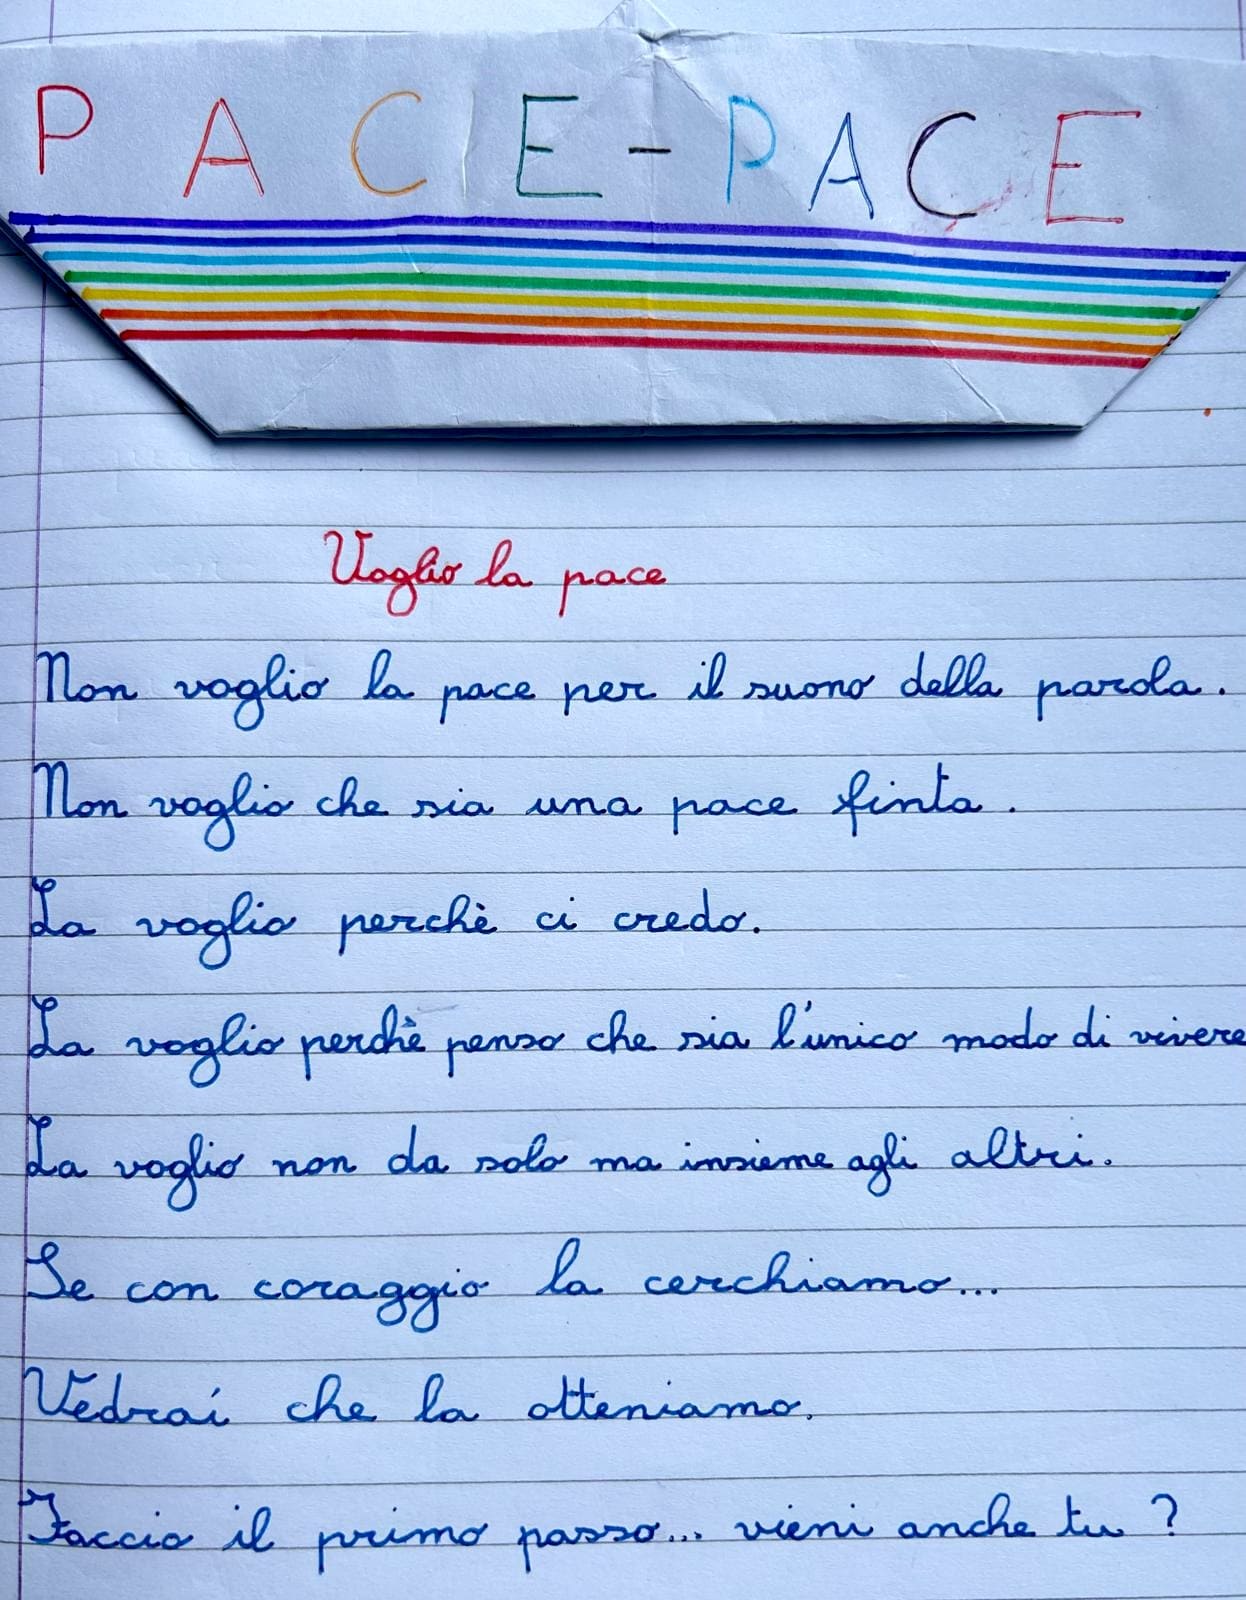 PACE-PACE
Voglio la pace
Non voglio la pace per il suono della parola.
Non voglio che sia una pace finta.
La voglio perchè ci credo.
La voglio perchè penso che sia l'unico modo di vivere
La voglio non da solo ma insieme agli altri.
Se con coraggio la cerchiamo...
Vedrai che la otteniamo.
Faccio il primo passo... vieni anche tu?